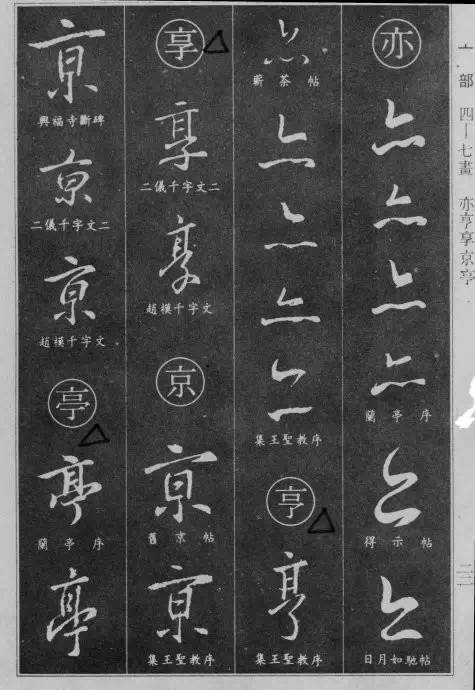 亠部 四—七畫 亦亨享京亭
亦
亦
亦
亦
亦
蘭亭序
亦
得示帖
亦
日月如馳帖
亦
蘄茶帖
亦
亦
亦
亦
集王聖教序
亨
亨
集王聖教序
享
享
二儀千字文二
享
趙模千字文
京
京
舊京帖
京
集王聖教序
京
興福寺斷碑
京
二儀千字文二
京
趙模千字文
亭
亭
蘭亭序
亭